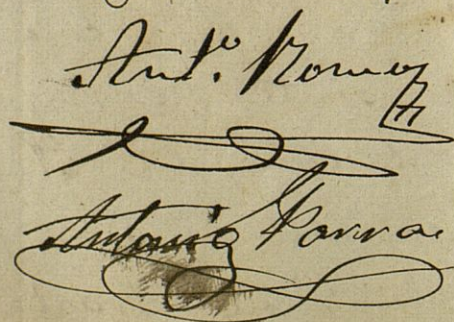 Antº. Romeo
Antonio Parra